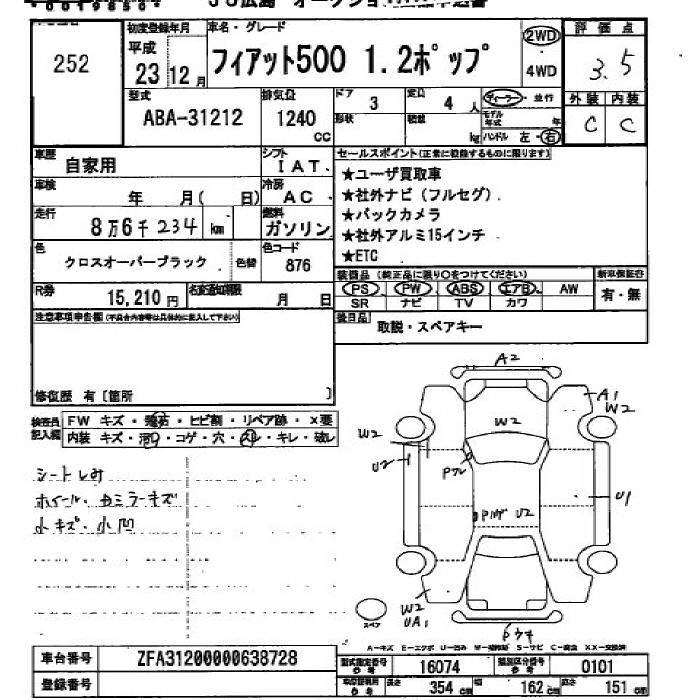 252
初度登録年月 車名・グレード
平成
23 12月
フィアット500 1.2ポップ
2WD
4WD
評価点
3.5
外装 内装
C C
型式
ABA-31212
排気量
1240
CC
ドア
3
定員
4 人
形状
積載
kg
ディーラー・並行
モデル年式 年
ハンドル 左・右
車歴
自家用
シフト
IAT
車検
年 月( 日)
冷房
AC
走行
8万6千234 km
燃料
ガソリン
色
クロスオーバーブラック
色替
色コード
876
R券
15,210円
名変通知期限
月 日
セールスポイント(正常に役割するものに限ります)
★ユーザ買取車
★社外ナビ(フルセグ)
★バックカメラ
★社外アルミ15インチ
★ETC
装備品(純正品に限り○をつけてください)
新車保証書
PS PW ABS エアB AW
SR ナビ TV カワ
有・無
後日品
取説・スペアキー
注意事項申告欄(不具合内容等は具体的に記入して下さい)
修復歴 有〔箇所 〕
検査員記入欄
FW キズ・飛石・ヒビ割・リペア跡・X要
内装 キズ・汚れ・コゲ・穴・スレ・キレ・破レ
シートしみ
ホイール、カミラーキズ
小キズ、小凹
A2
A1
W2
W2
W2
U2
Pワレ
U2
U1
W2
UA1
スペア
A-キズ E-エクボ U-凹み W-補修跡 S-サビ C-腐食 XX-交換済
車台番号
ZFA31200000638728
登録番号
型式指定番号
16074
類別区分番号
0101
長さ
354 cm
幅
162 cm
高さ
151 cm